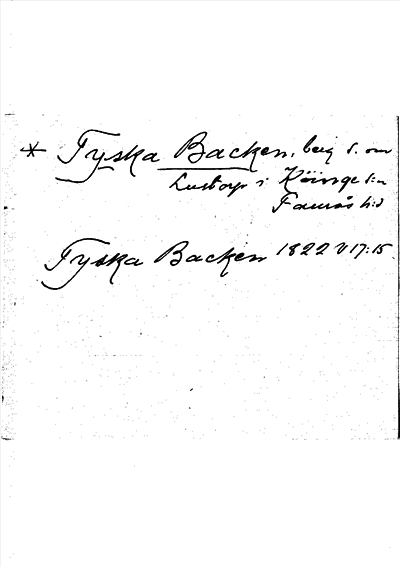 * Tyska Backen, berg s. om
Lustorp i Köinge s:n
Faurås h:d
Tyska Backen 1822 V 17:15.